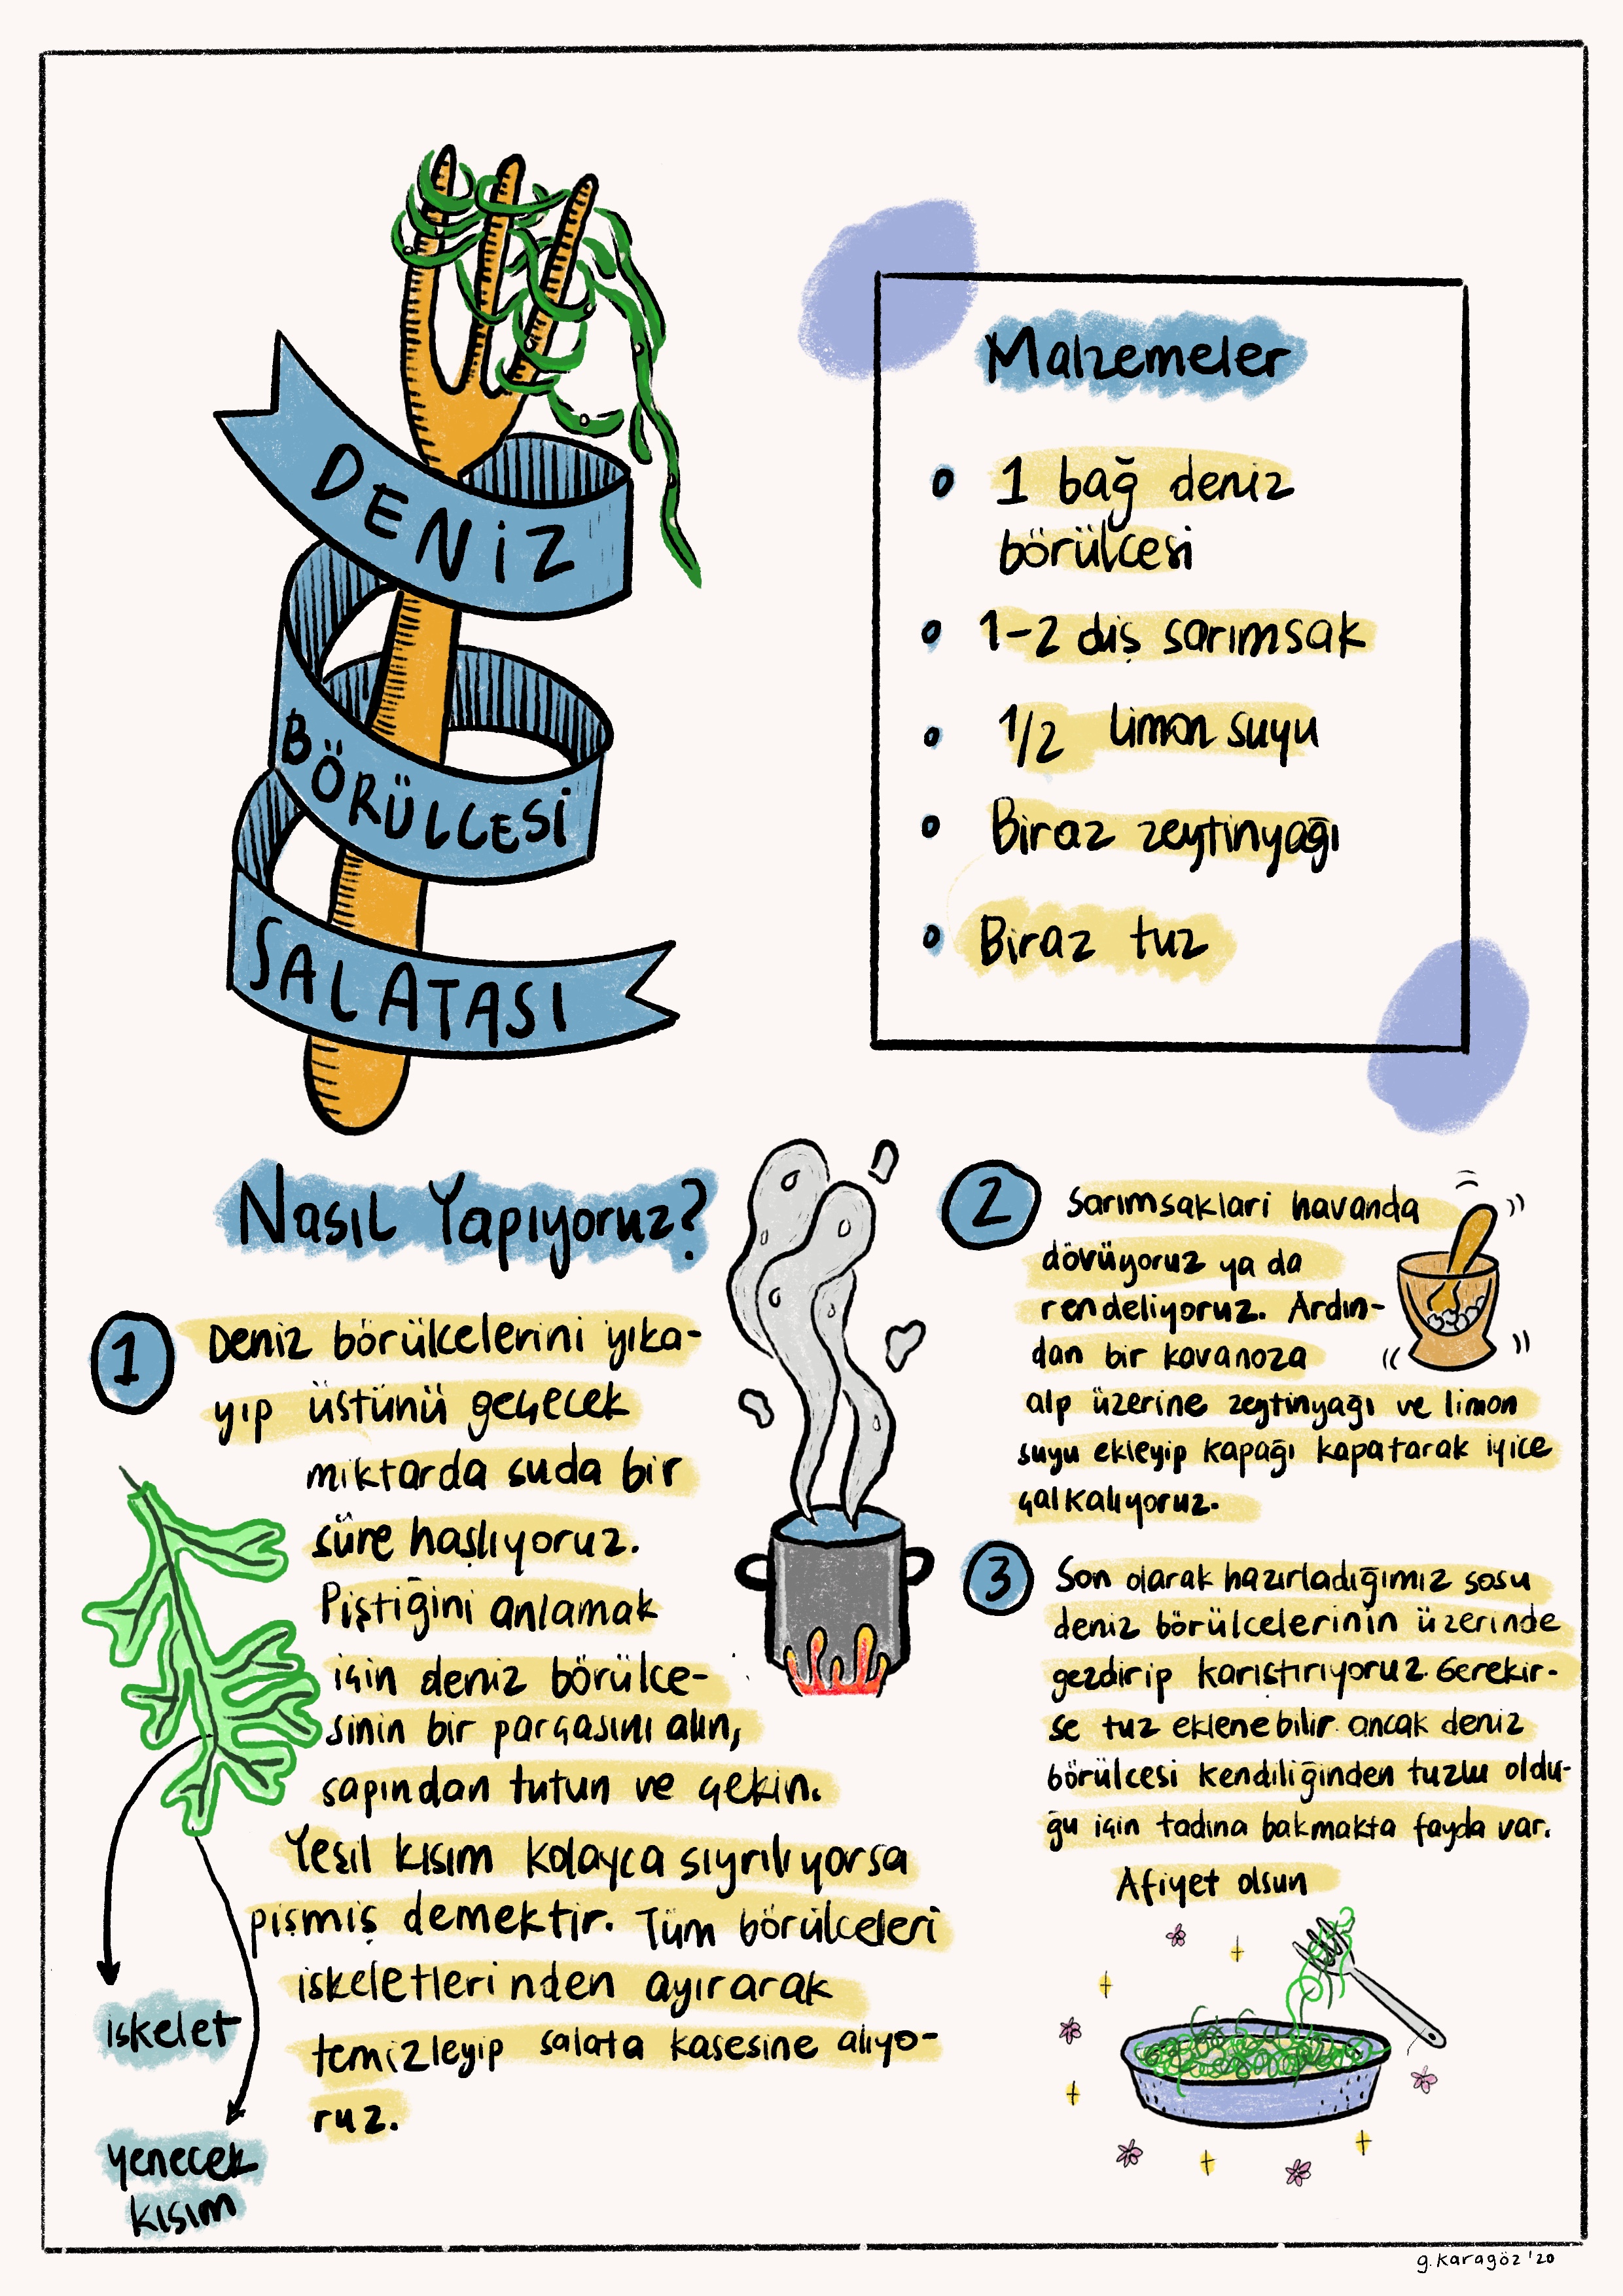 DENİZ
BÖRÜLCESİ
SALATASI
Malzemeler
1 bağ deniz
börülcesi
1-2 diş sarımsak
1/2 limon suyu
Biraz zeytinyağı
Biraz tuz
Nasıl Yapıyoruz?
1
Deniz börülcelerini yıka-
yıp üstünü geçecek
miktarda suda bir
süre haşlıyoruz.
Piştiğini anlamak
için deniz börülce-
sinin bir parçasını alın,
sapından tutun ve çekin.
Yeşil kısım kolayca sıyrılıyorsa
pişmiş demektir. Tüm börülceleri
iskeletlerinden ayırarak
temizleyip salata kasesine alıyo-
ruz.
iskelet
yenecek
kısım
2
Sarımsaklari havanda
dövüyoruz ya da
rendeliyoruz. Ardın-
dan bir kavanoza
alp üzerine zeytinyağı ve limon
suyu ekleyip kapağı kapatarak iyice
çalkalıyoruz.
3
Son olarak hazırladığımız sosu
deniz börülcelerinin üzerinde
gezdirip karıştırıyoruz. Gerekir-
se tuz eklenebilir ancak deniz
börülcesi kendiliğinden tuzlu oldu-
ğu için tadına bakmakta fayda var.
Afiyet olsun
g.karagöz '20